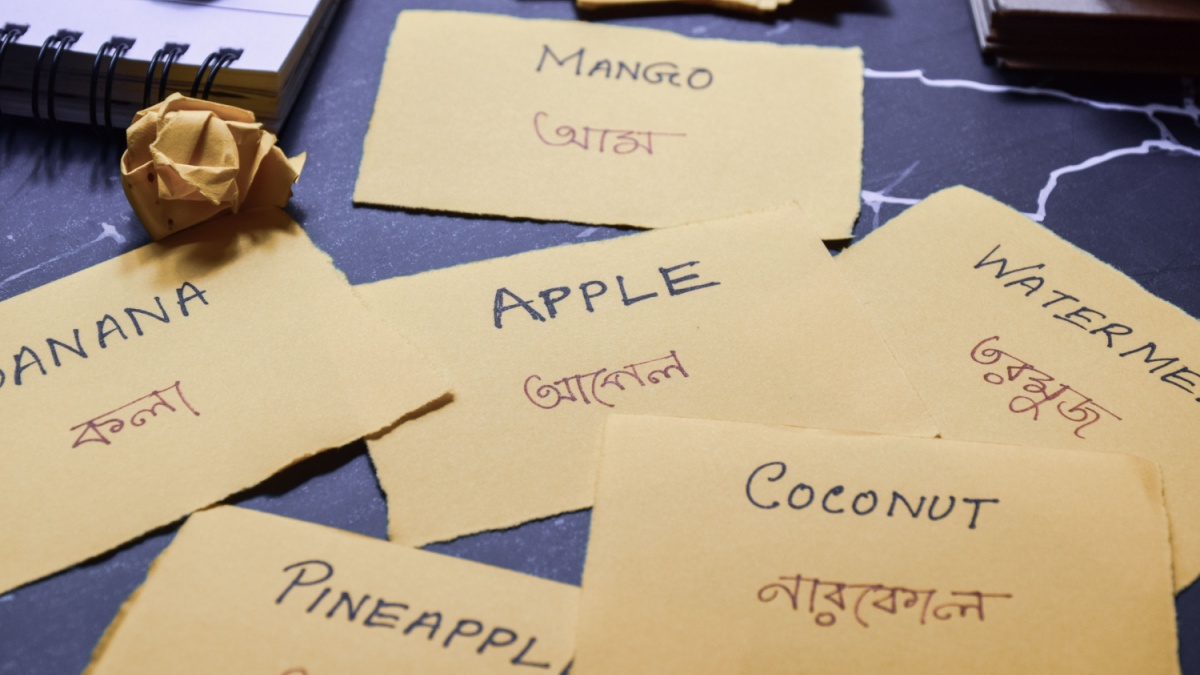 MANGO
আম
BANANA
কলা
APPLE
আপেল
WATERME
তরমুজ
COCONUT
নারকোল
PINEAPPL